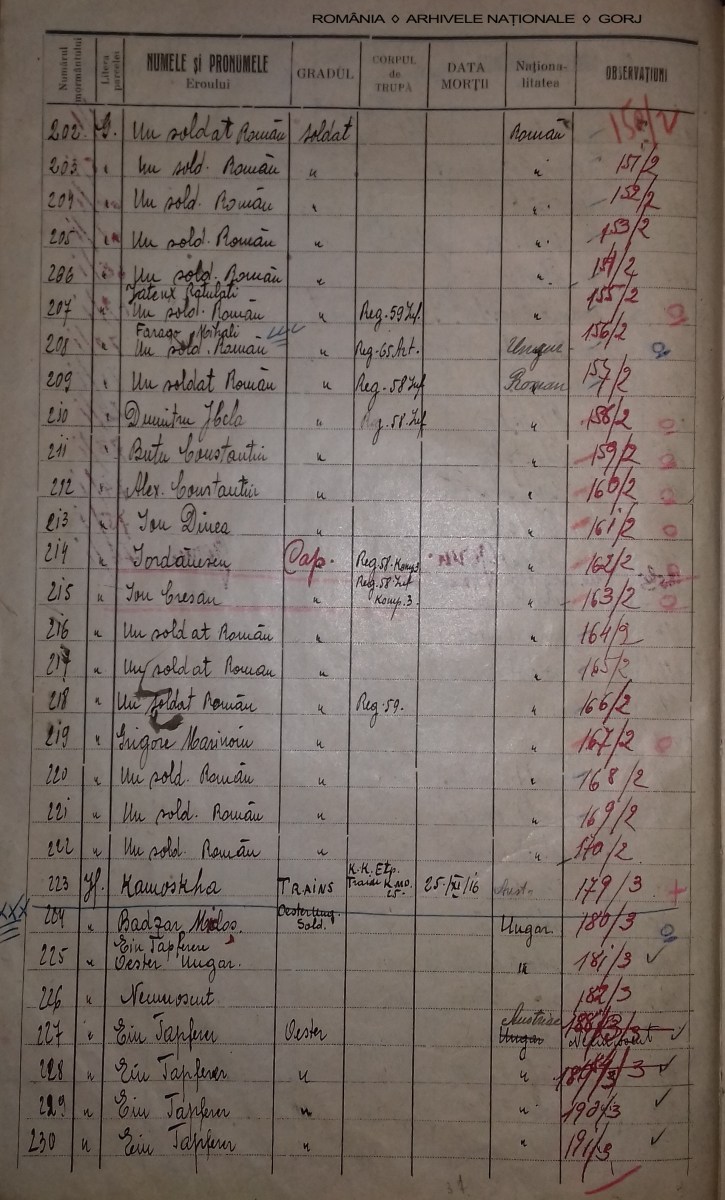 ROMÂNIA ◊ ARHIVELE NAȚIONALE ◊ GORJ
Numărul mormântului Litera parcelei NUMELE și PRONUMELE Eroului GRADUL CORPUL de TRUPĂ DATA MORȚII Naționalitatea OBSERVAȚIUNI
202 G. Un soldat Român soldat Român 150/2
203 " Un sold. Român " " 151/2
204 " Un sold. Român " " 152/2
205 " Un sold. Român " " 153/2
206 " Un sold. Român " " 154/2
207 " Un sold. Român " Reg. 59 Inf. " 155/2
Farago Mihali
208 " Un sold. Român " Reg. 65 Art. Ungur 156/2
209 " Un soldat Român " Reg. 58 Inf Roman 157/2
210 " Dumitru " Reg. 58. Inf " 158/2
211 " Butu Constantin " " 159/2
212 " Alex. Constantin " " 160/2
213 " Ion Dinea " " 161/2
214 " Iordănescu Cap. Reg. 58. Komp 3 " 162/2
215 " Ion Cresan " Reg. 58 Inf Komp. 3. " 163/2
216 " Un soldat Român " " 164/2
217 " Un soldat Roman " " 165/2
218 " Un soldat Român " Reg. 59. " 166/2
219 " Grigore Marinoiu " " 167/2
220 " Un sold. Român " " 168/2
221 " Un sold. Român " " 169/2
222 " Un sold. Român " " 170/2
223 H. Kamoskha TRAINS K.K. Etp. Train Kmo. 25. 25/XI/16 Aust. 179/3
XXX
224 " Badzar Milos. Oesterung. Sold. Ungar. 180/3
225 " Ein Tapferer Oester Ungar. " 181/3
226 " Necunoscut 182/3
227 " Ein Tapferer Oester Austriac Ungar Necunoscut
228 " Ein Tapferer " "
229 " Ein Tapferer " " 190/3
230 " Ein Tapferer " " 191/3